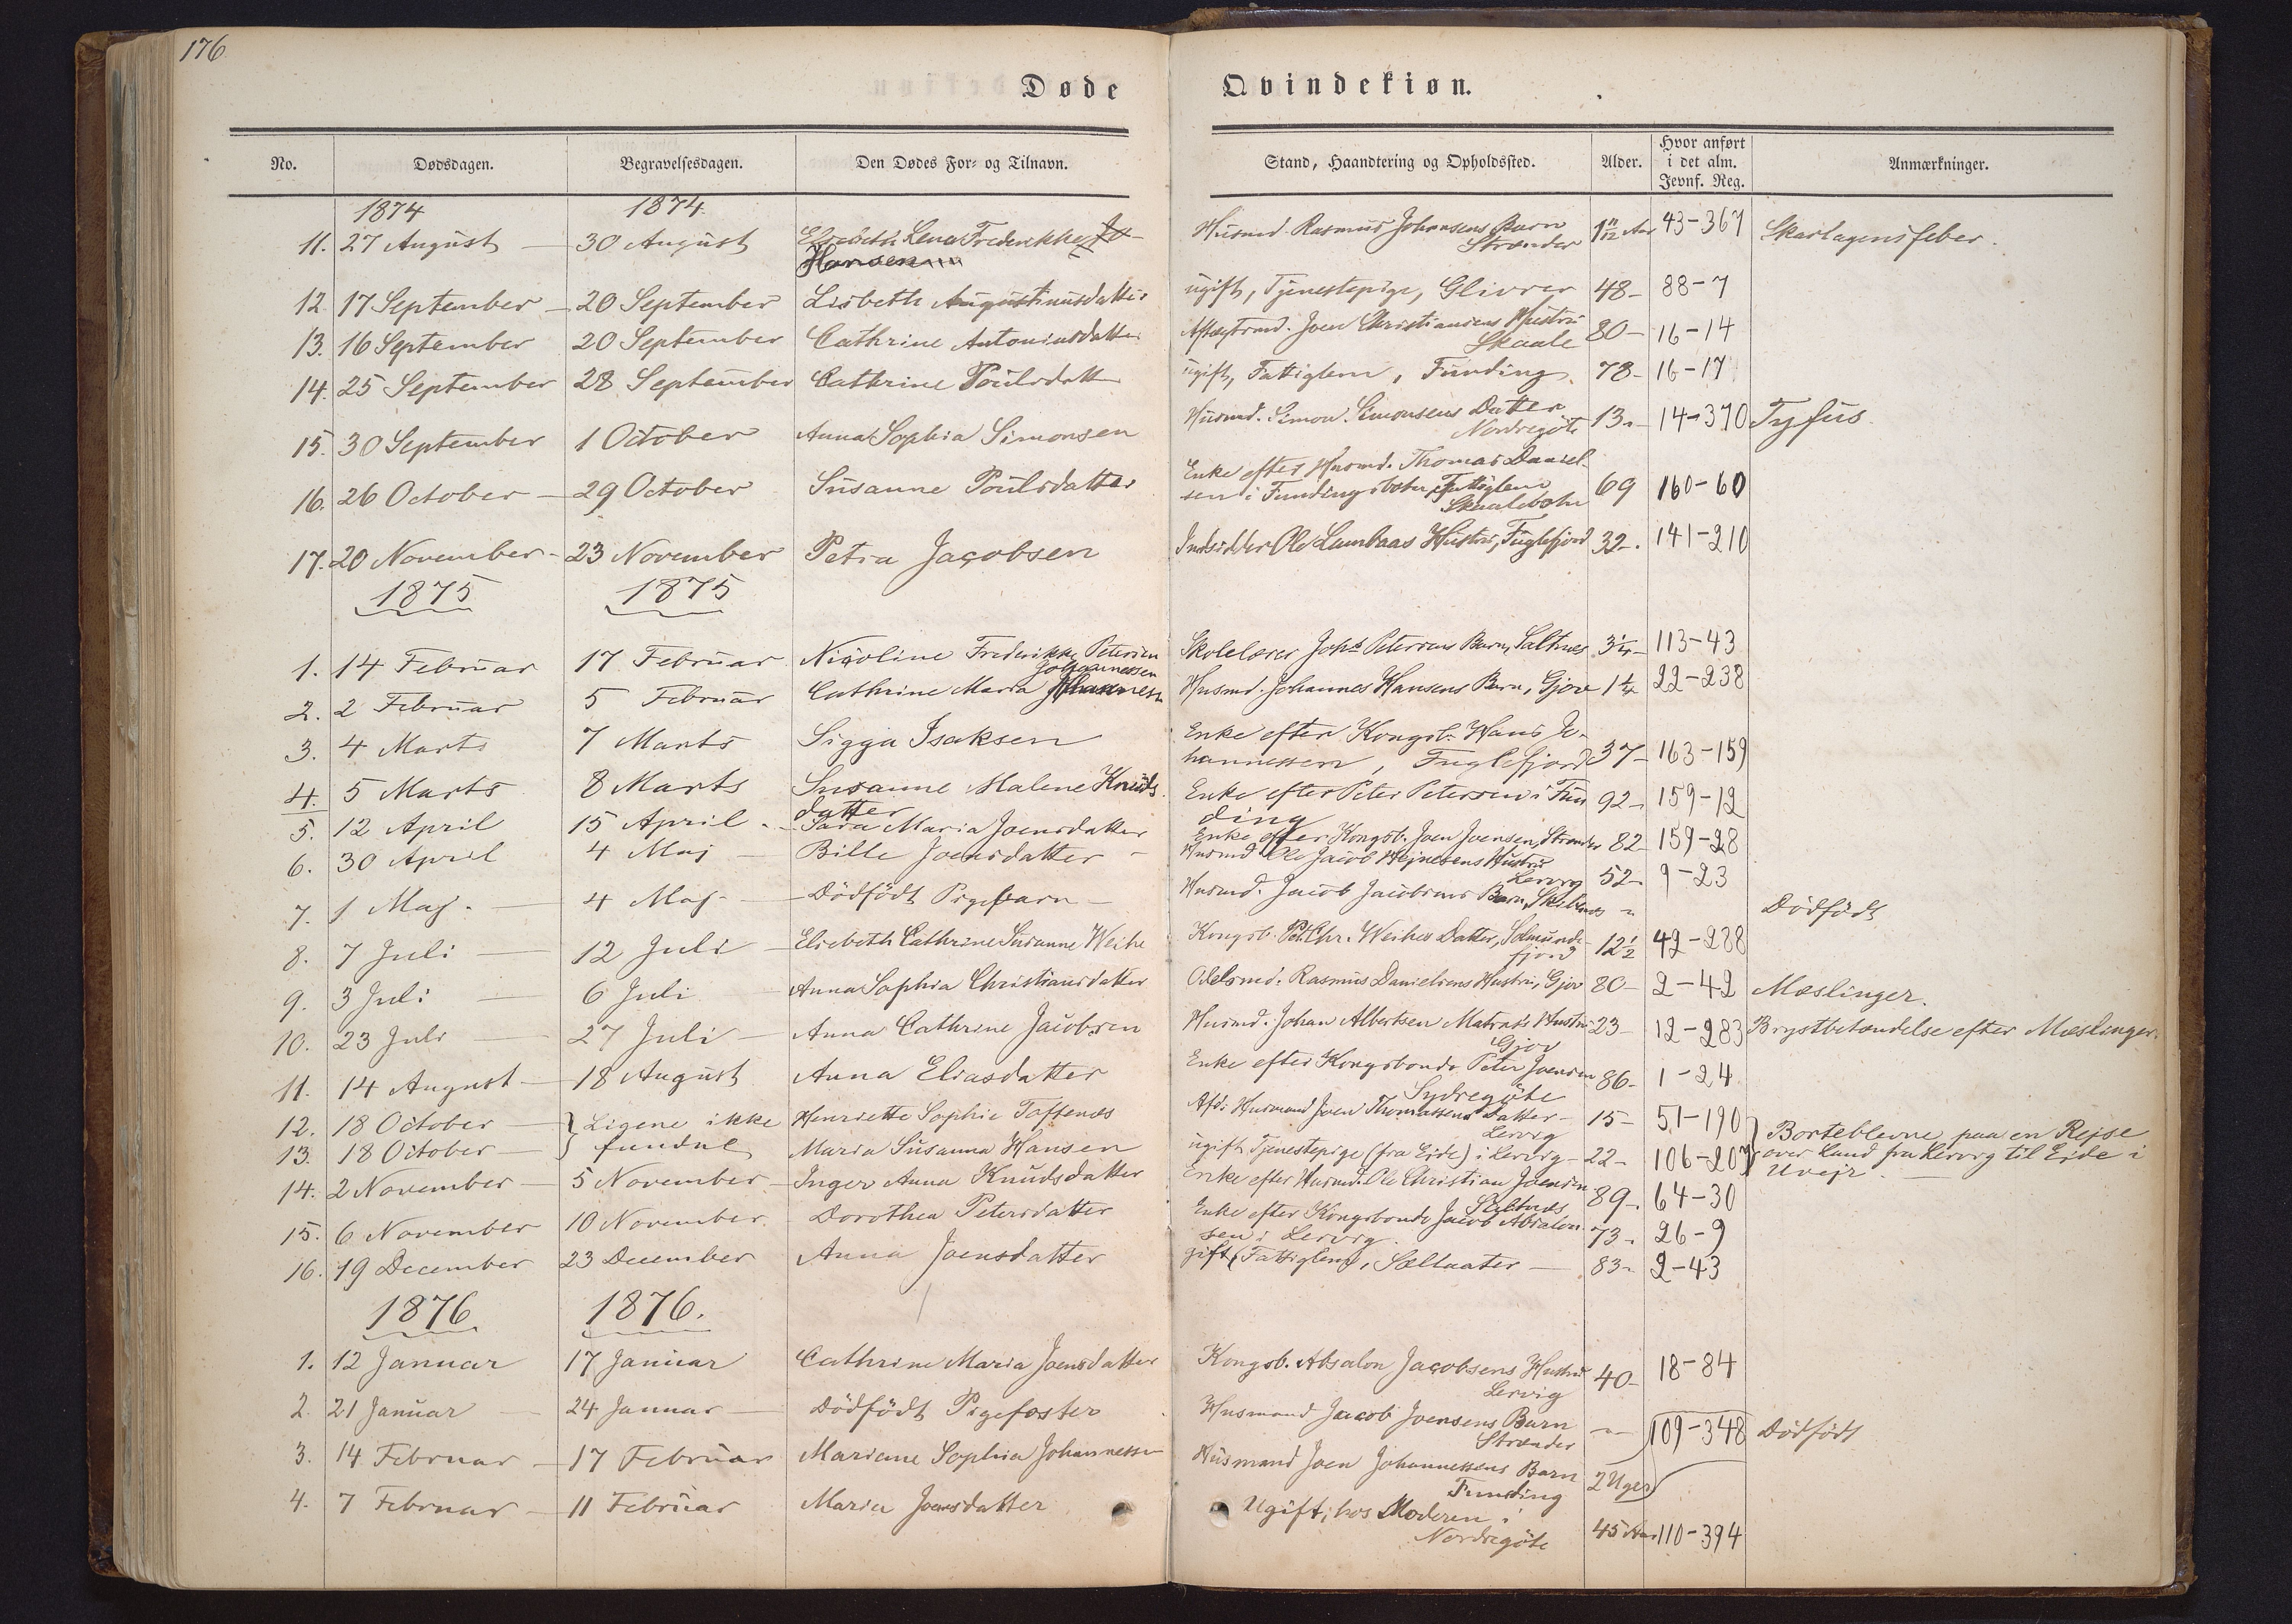 176
Døde Qvindekiøn.
No. Dødsdagen. Begravelsesdagen. Den Dødes For- og Tilnavn. Stand, Haandtering og Opholdssted. Alder. Hvor anført i det alm. Jevnf. Reg. Anmærkninger.
1874 1874
11. 27 August 30 August Elsebeth Lena Frederikke Jo- Hansen Husmd. Rasmus Johansens Barn Strænder 1 11/12 Aar 43-367 Skarlagensfeber.
12. 17 September 20 September Lisbeth Augustinusdatter ugift, Tjenestepige, Glivrer 48 88-7
13. 16 September 20 September Cathrine Antoniusdatter Aftægtsmd. Joen Christiansens Hustru Skaale 80 16-14
14. 25 September 28 September Cathrine Poulsdatt ugift, Fattiglem, Funding 78 16-17
15. 30 September 1 October Anna Sophia Simonsen Husmd. Simon Simonsens Datter Nordregöte 13 14-370 Tyfus
16. 26 October 29 October Susanne Poulsdatter Enke efter Husmd. Thomas Daniel- sen i Fundingsbotn, Fattiglem Skaalebotn 69 160-60
17. 20 November 23 November Petra Jacobsen Indsidder Ole Lambaas Hustru, Fuglefjord 32 141-210
1875 1875
1. 14 Februar 17 Februar Nicoline Frederikke Petersen Skolelærer Johs Petersens Barn, Saltnæs 3 1/4 113-43
2. 2 Februar 5 Februar Cathrine Maria Johannessen Husmd. Johannes Hansens Barn, Gjov 1 1/4 22-238
3. 4 Marts 7 Marts Sigga Isaksen Enke efter Kongsb. Hans Jo- hannessen, Fuglefjord 37 163-159
4. 5 Marts 8 Marts Susanne Malene Knuds datter Enke efter Peter Petersen i Fun ding 92 159-12
5. 12 April 15 April Sara Maria Joensdatter Enke efter Kongsb. Joen Joensen, Strænder 82 159-28
6. 30 April 4 Maj Bille Joensdatter Husmd Ole Jacob Hejnesens Hustru Lervig 52 9-23
7. 1 Maj 4 Maj Dödfödt Pigebarn Husmd. Jacob Jacobsens Barn, " Dödfödt
8. 7 Juli 12 Juli Elsebeth Cathrine Susanne Weihe Kongsb. Pet. Chr. Weihes Datter, Solmunde- fjord 12 1/2 42-288
9. 3 Juli 6 Juli Anna Sophia Christiansdatter Odelsmd. Rasmus Danielsens Hustru, Gjov 80 2-42 Mæslinger.
10. 23 Juli 27 Juli Anna Cathrine Jacobsen Husmd. Johan Albertsen Matras's Hustru Gjov 23 12-283 Brystbetændelse efter Mæslinger.
11. 14 August 18 August Anna Eliasdatter Enke efter Kongsbonde Peter Joensen Sydregöte 86 1-24
12. 18 October Ligene ikke Henriette Sophie Toftenæs Afd. Husmand Joen Thomassens Datter Lervig 15 51-190 Borteblevne paa en Rejse
13. 18 October fundne Maria Susanna Hansen ugift Tjenestepige (fra Eide) i Lervig 22 106-207 over Land fra Lervig til Eide i Uvejr.
14. 2 November 5 November Inger Anna Knudsdatter Enke efter Husmd. Ole Christian Joensen Saltnæs 89 64-30
15. 6 November 10 November Dorothea Petersdatter Enke efter Kongsbonde Jacob Absalon- sen i Lervig. 73 26-9
16. 19 December 23 December Anna Joensdatter gift (Fattiglem), Seltnater 83 2-43
1876 1876.
1. 12 Januar 17 Januar Cathrine Maria Joensdatter Kongsb. Absalon Jacobsens Hustru Lervig 40 18-84
2. 21 Januar 24 Januar Dödfödt Pigefoster Husmand Jacob Joensens Barn Strænder " 109-348 Dödfödt
3. 14 Februar 17 Februar Mariane Sophia Johannessen Husmand Joen Johannessens Barn Funding 2 Uger
4. 7 Februar 11 Februar Maria Joensdatter Ugift, hos Moderen i Nordregöte 45 Aar 110-394